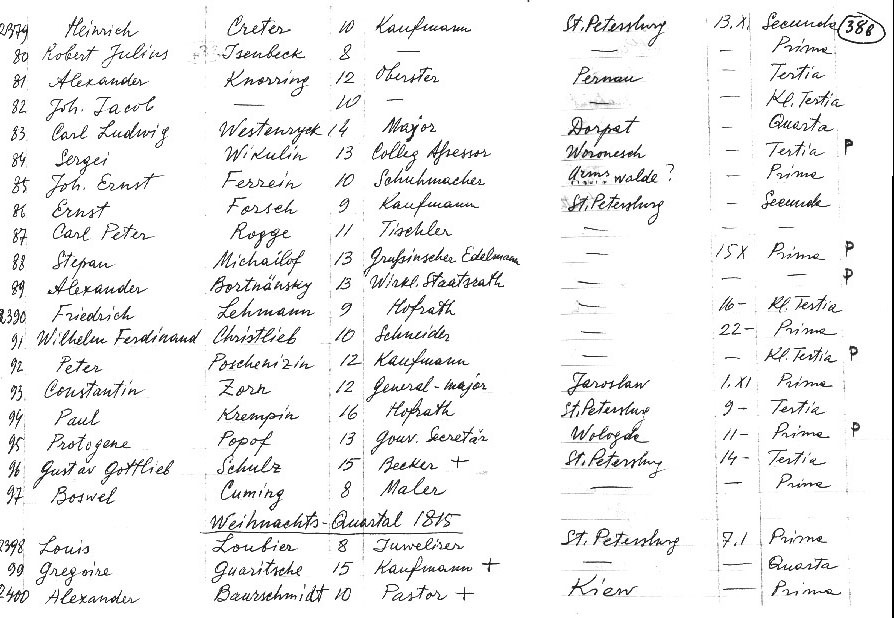 2379 Heinrich Creter 10 Kaufmann St. Petersburg 13. X. Secunda 388
80 Robert Julius Isenbeck 8 — — Prima
81 Alexander Knorring 12 Oberster Pernau — Tertia
82 Joh. Jacob — 10 — — — Kl. Tertia
83 Carl Ludwig Westenryck 14 Major Dorpat — Quarta
84 Sergei Wikulin 13 Colleg Assessor Woronesch — Tertia P
85 Joh. Ernst Ferrein 10 Schuhmacher Arms walde? — Prima
86 Ernst Forsch 9 Kaufmann St. Petersburg — Secunda
87 Carl Peter Rogge 11 Tischler — — —
88 Stepan Michailof 13 Grusinscher Edelmann — 15 X Prima P
89 Alexander Bortnänsky 13 Wirkl. Staatsrath — — — P
2390 Friedrich Lehmann 9 Hofrath — 16- Kl. Tertia
91 Wilhelm Ferdinand Christlieb 10 Schneider — 22- Prima
92 Peter Poschenizin 12 Kaufmann — — Kl. Tertia P
93 Constantin Zorn 12 General-major Jaroslaw 1. XI Prima
94 Paul Krempin 16 Hofrath St. Petersburg 9- Tertia
95 Protogene Popof 13 Gouv. Secretär Wologda 11- Prima P
96 Gustav Gottlieb Schulz 15 Becker + St. Petersburg 14- Tertia
97 Boswel Cuming 8 Maler — — Prima
Weihnachts-Quartal 1815
2398 Louis Loubier 8 Juwelirer St. Petersburg 7.1 Prima
99 Gregoire Guaritsche 15 Kaufmann + — — Quarta
2400 Alexander Baurschmidt 10 Pastor + Kiew — Prima